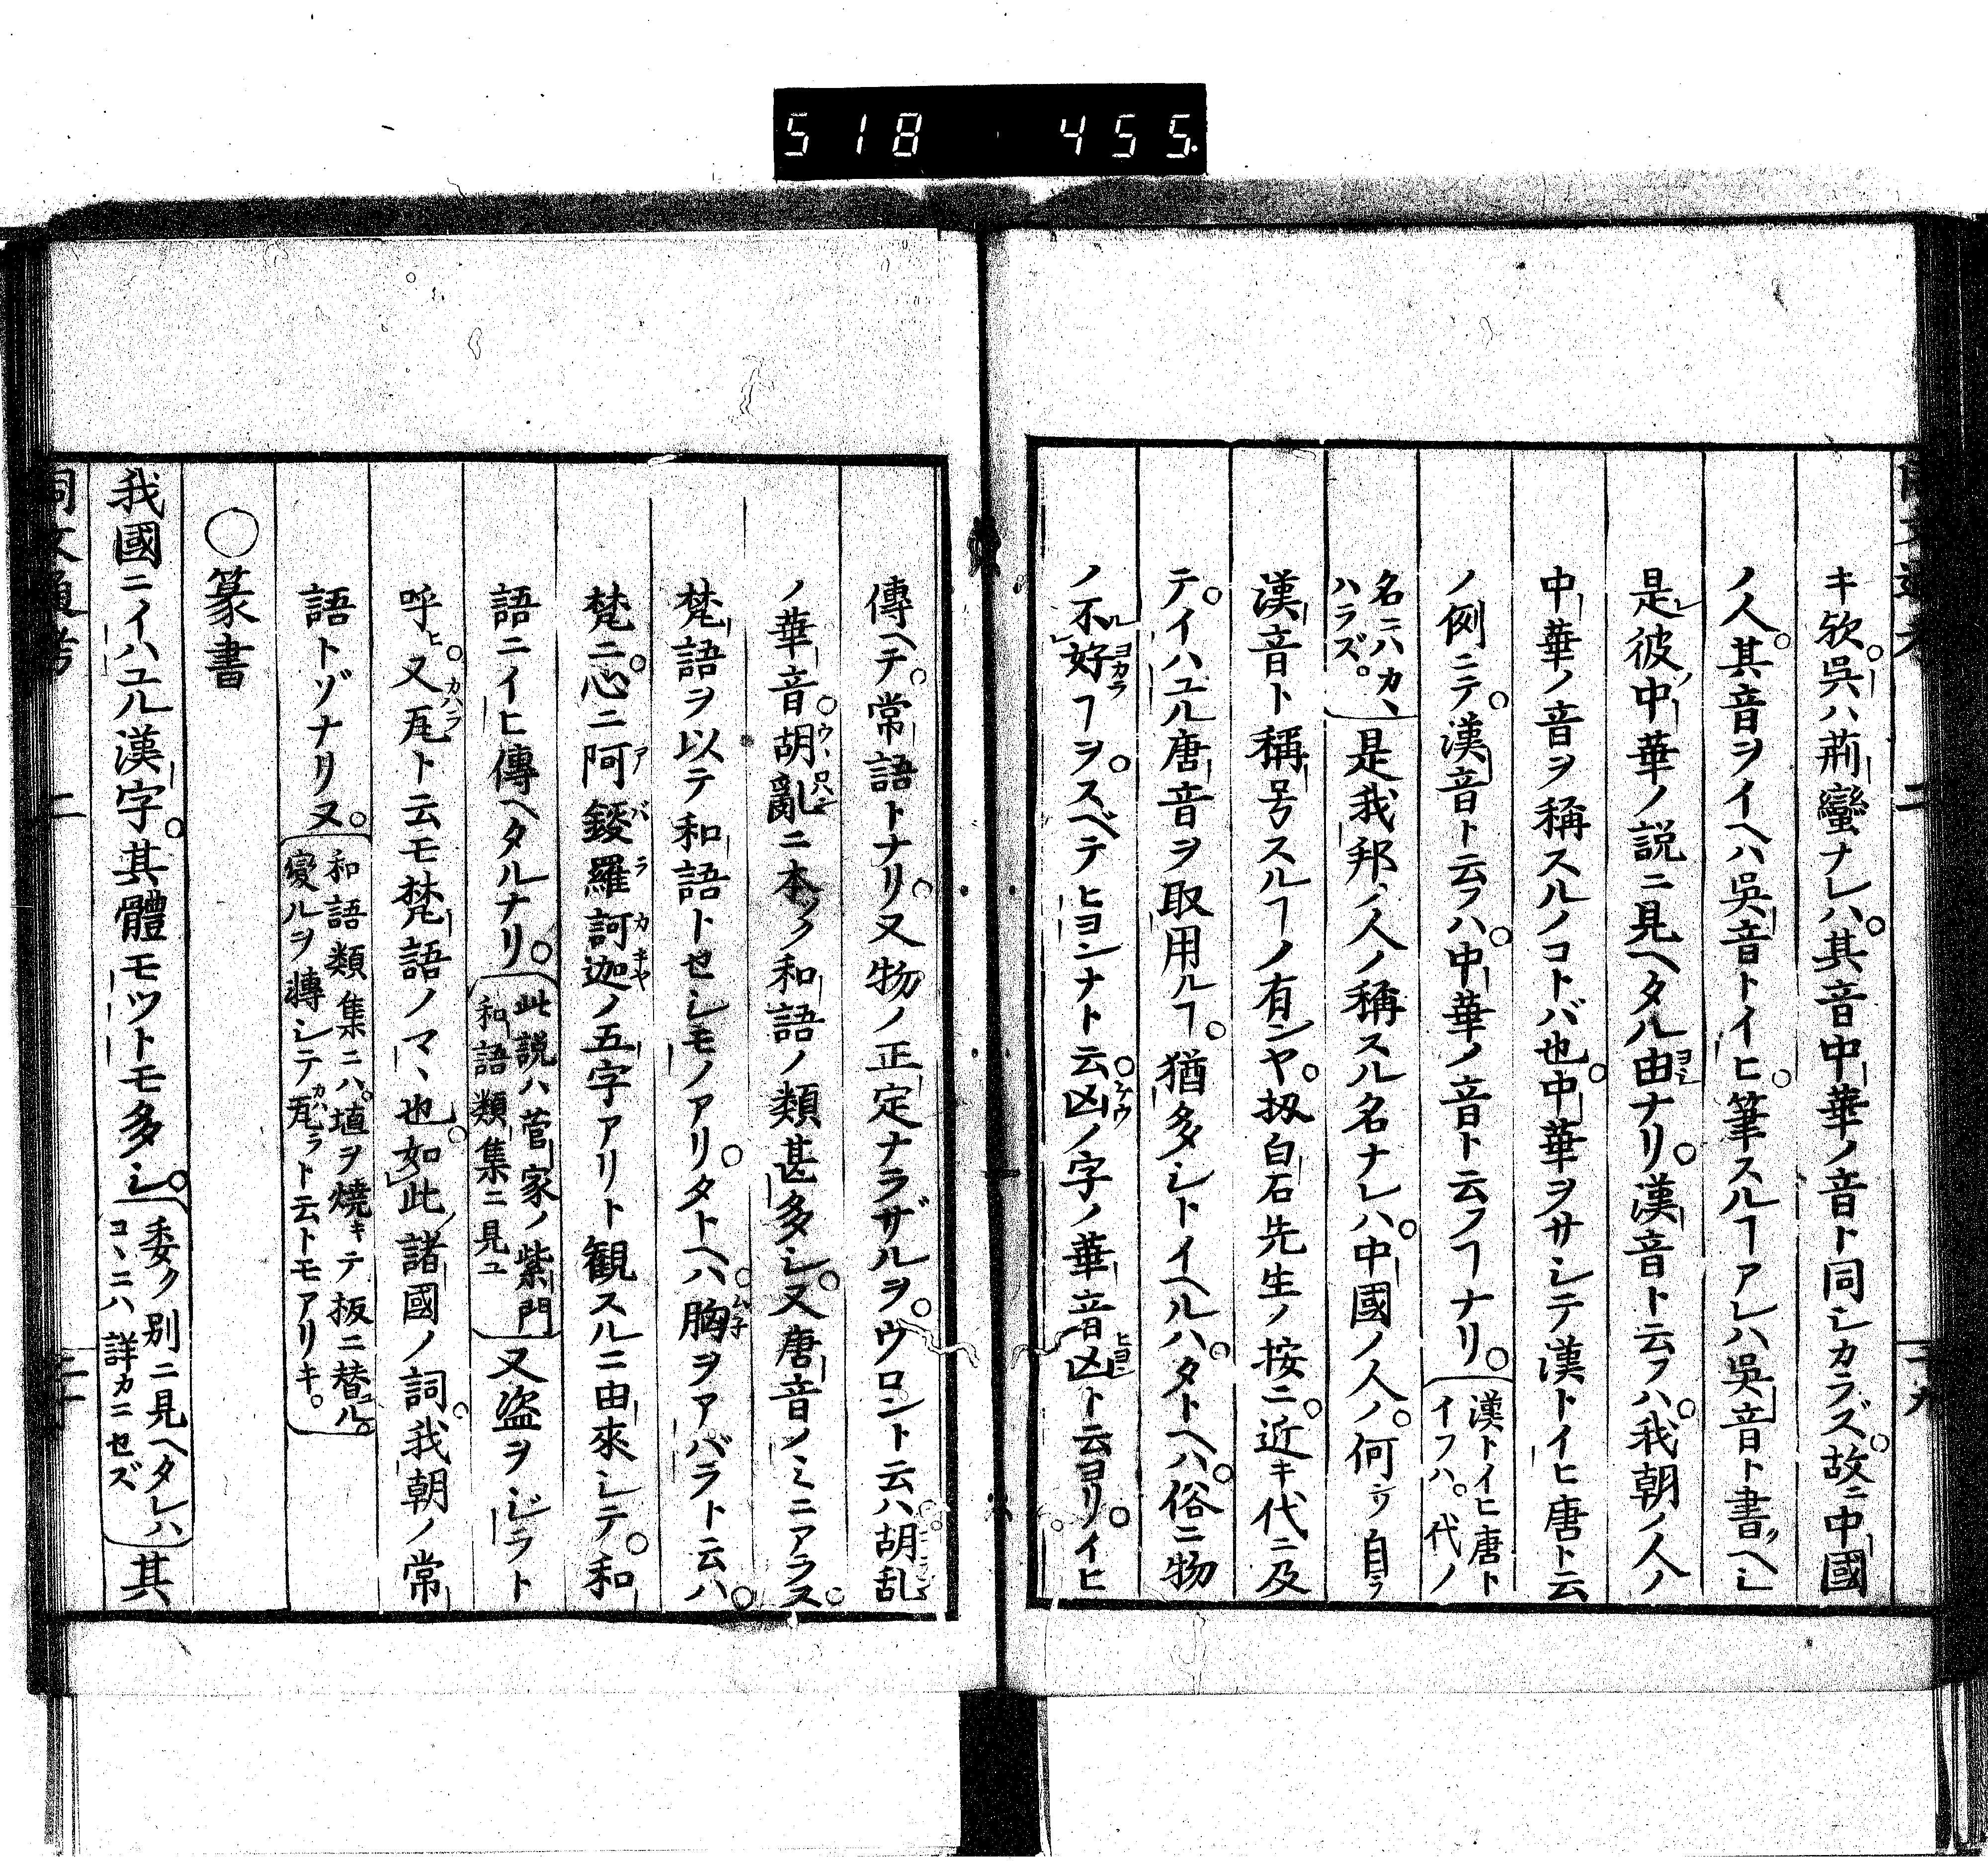 518 455
キ欤。呉ハ荊蠻ナレハ。其音中華ノ音ト同シカラズ。故ニ中國
ノ人。其音ヲイヘハ呉音トイヒ。筆スルヿアレハ呉音ト書ヘシ
是レ彼ノ中華ノ説ニ見ヘタル由ナリ。漢音ト云フハ。我朝ノ人ノ
中華ノ音ヲ稱スルノコトバ也。中華ヲサシテ漢トイヒ唐ト云
ノ例ニテ。漢音ト云フハ。中華ノ音ト云フヿナリ。漢トイヒ唐ト
イフハ。代ノ
名ニハカヽ
ハラズ。
是我邦ノ人ノ稱スル名ナレハ。中國ノ人ノ。何ソ自ラ
漢音ト稱号スルヿノ有ンヤ。扨白石先生ノ按ニ。近キ代ニ及
テ。イハユル唐音ヲ取用ルヿ。猶多シトイヘルハ。タトヘハ。俗ニ物
ノ不レ好ヿヲ。スベテヒヨンナト云。凶ノ字ノ華音凶ト云ヨリ。イヒ
傳ヘテ。常語トナリ。又物ノ正定ナラザルヲ。ウロント云ハ胡乱
ノ華音。胡亂ニ本ク和語ノ類甚多シ。又唐音ノミニアラス。
梵語ヲ以テ和語トセシモノアリ。タトヘハ。胸ヲアバラト云ハ。
梵ニ。心ニ阿鍐羅訶迦ノ五字アリト観スルニ由來シテ。和
語ニイヒ傳ヘタルナリ。此説ハ菅家ノ紫門
和語類集ニ見ユ
又盗ヲシラト
呼ヒ。又瓦ト云モ梵語ノマヽ也。如此ノ諸國ノ詞。我朝ノ常
語トゾナリヌ。和語類集ニハ。埴ヲ燒キテ板ニ替ル。
變ルヲ轉シテ瓦ラト云トモアリキ。
〇篆書
我國ニイハユル漢字。其體モツトモ多シ。委ク別ニ見ヘタレハ
コヽニハ詳カニセズ
其
同文通考 二